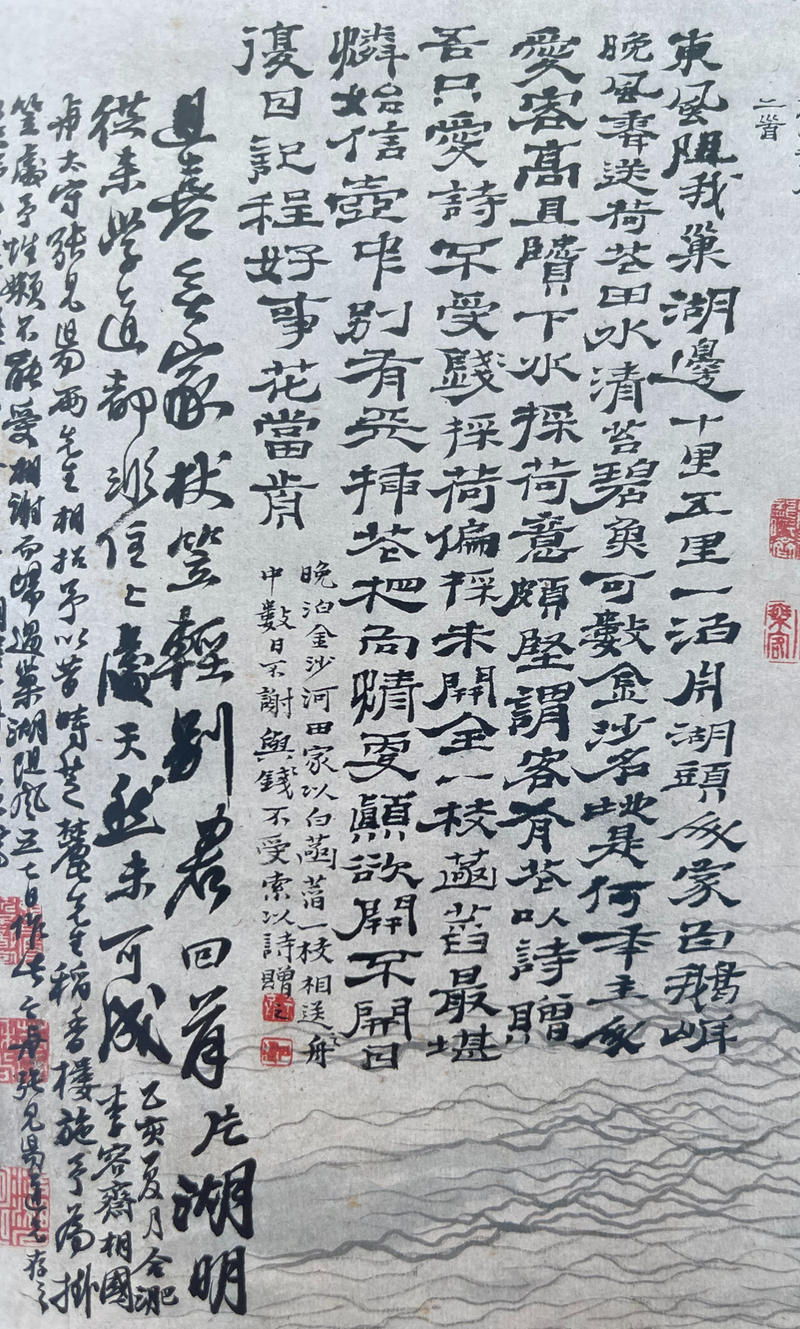 二首
東風阻我巢湖邊十里五里一泊舟湖頭人家白鵝岸
晚風霽送荷花田水清苔碧魚可數金沙名地是何年主人
愛客高且贖下水採荷意頗堅謂客有花以詩贈
吾只愛詩不愛錢採荷偏採未開全一枝菡萏最堪
憐始信壺中別有天插花把向情更顛欲開不開日
復日記程好事花當肯
晚泊金沙河田家以白菡萏一枝相送舟
中數日不謝與錢不受索以詩贈之
且喜無家杖笠輕別君回首片湖明
從來學道都非住住處天然未可成
乙亥夏月合肥
李容齋相國
與太守張見陽兩先生相招予以昔時芝麓先生稻香樓施予為掛
笠處予性懶不能受相謝而歸過巢湖阻風五七日作此張見陽道先存之